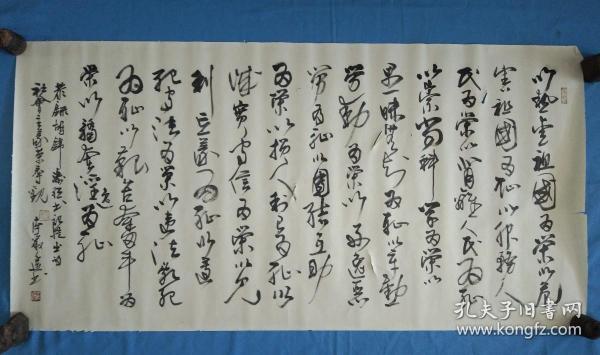 以热爱祖国为荣以危
害祖国为耻以服务人
民为荣以背离人民为耻
以崇尚科学为荣以
愚昧无知为耻以辛勤
劳动为荣以好逸恶
劳为耻以团结互助
为荣以损人利己为耻以
诚实守信为荣以见
利忘义为耻以遵
纪守法为荣以违法乱纪
为耻以艰苦奋斗为
荣以骄奢淫逸为耻
恭录胡锦涛
社会主义荣辱观
孔夫子旧书网
www.kongfz.com